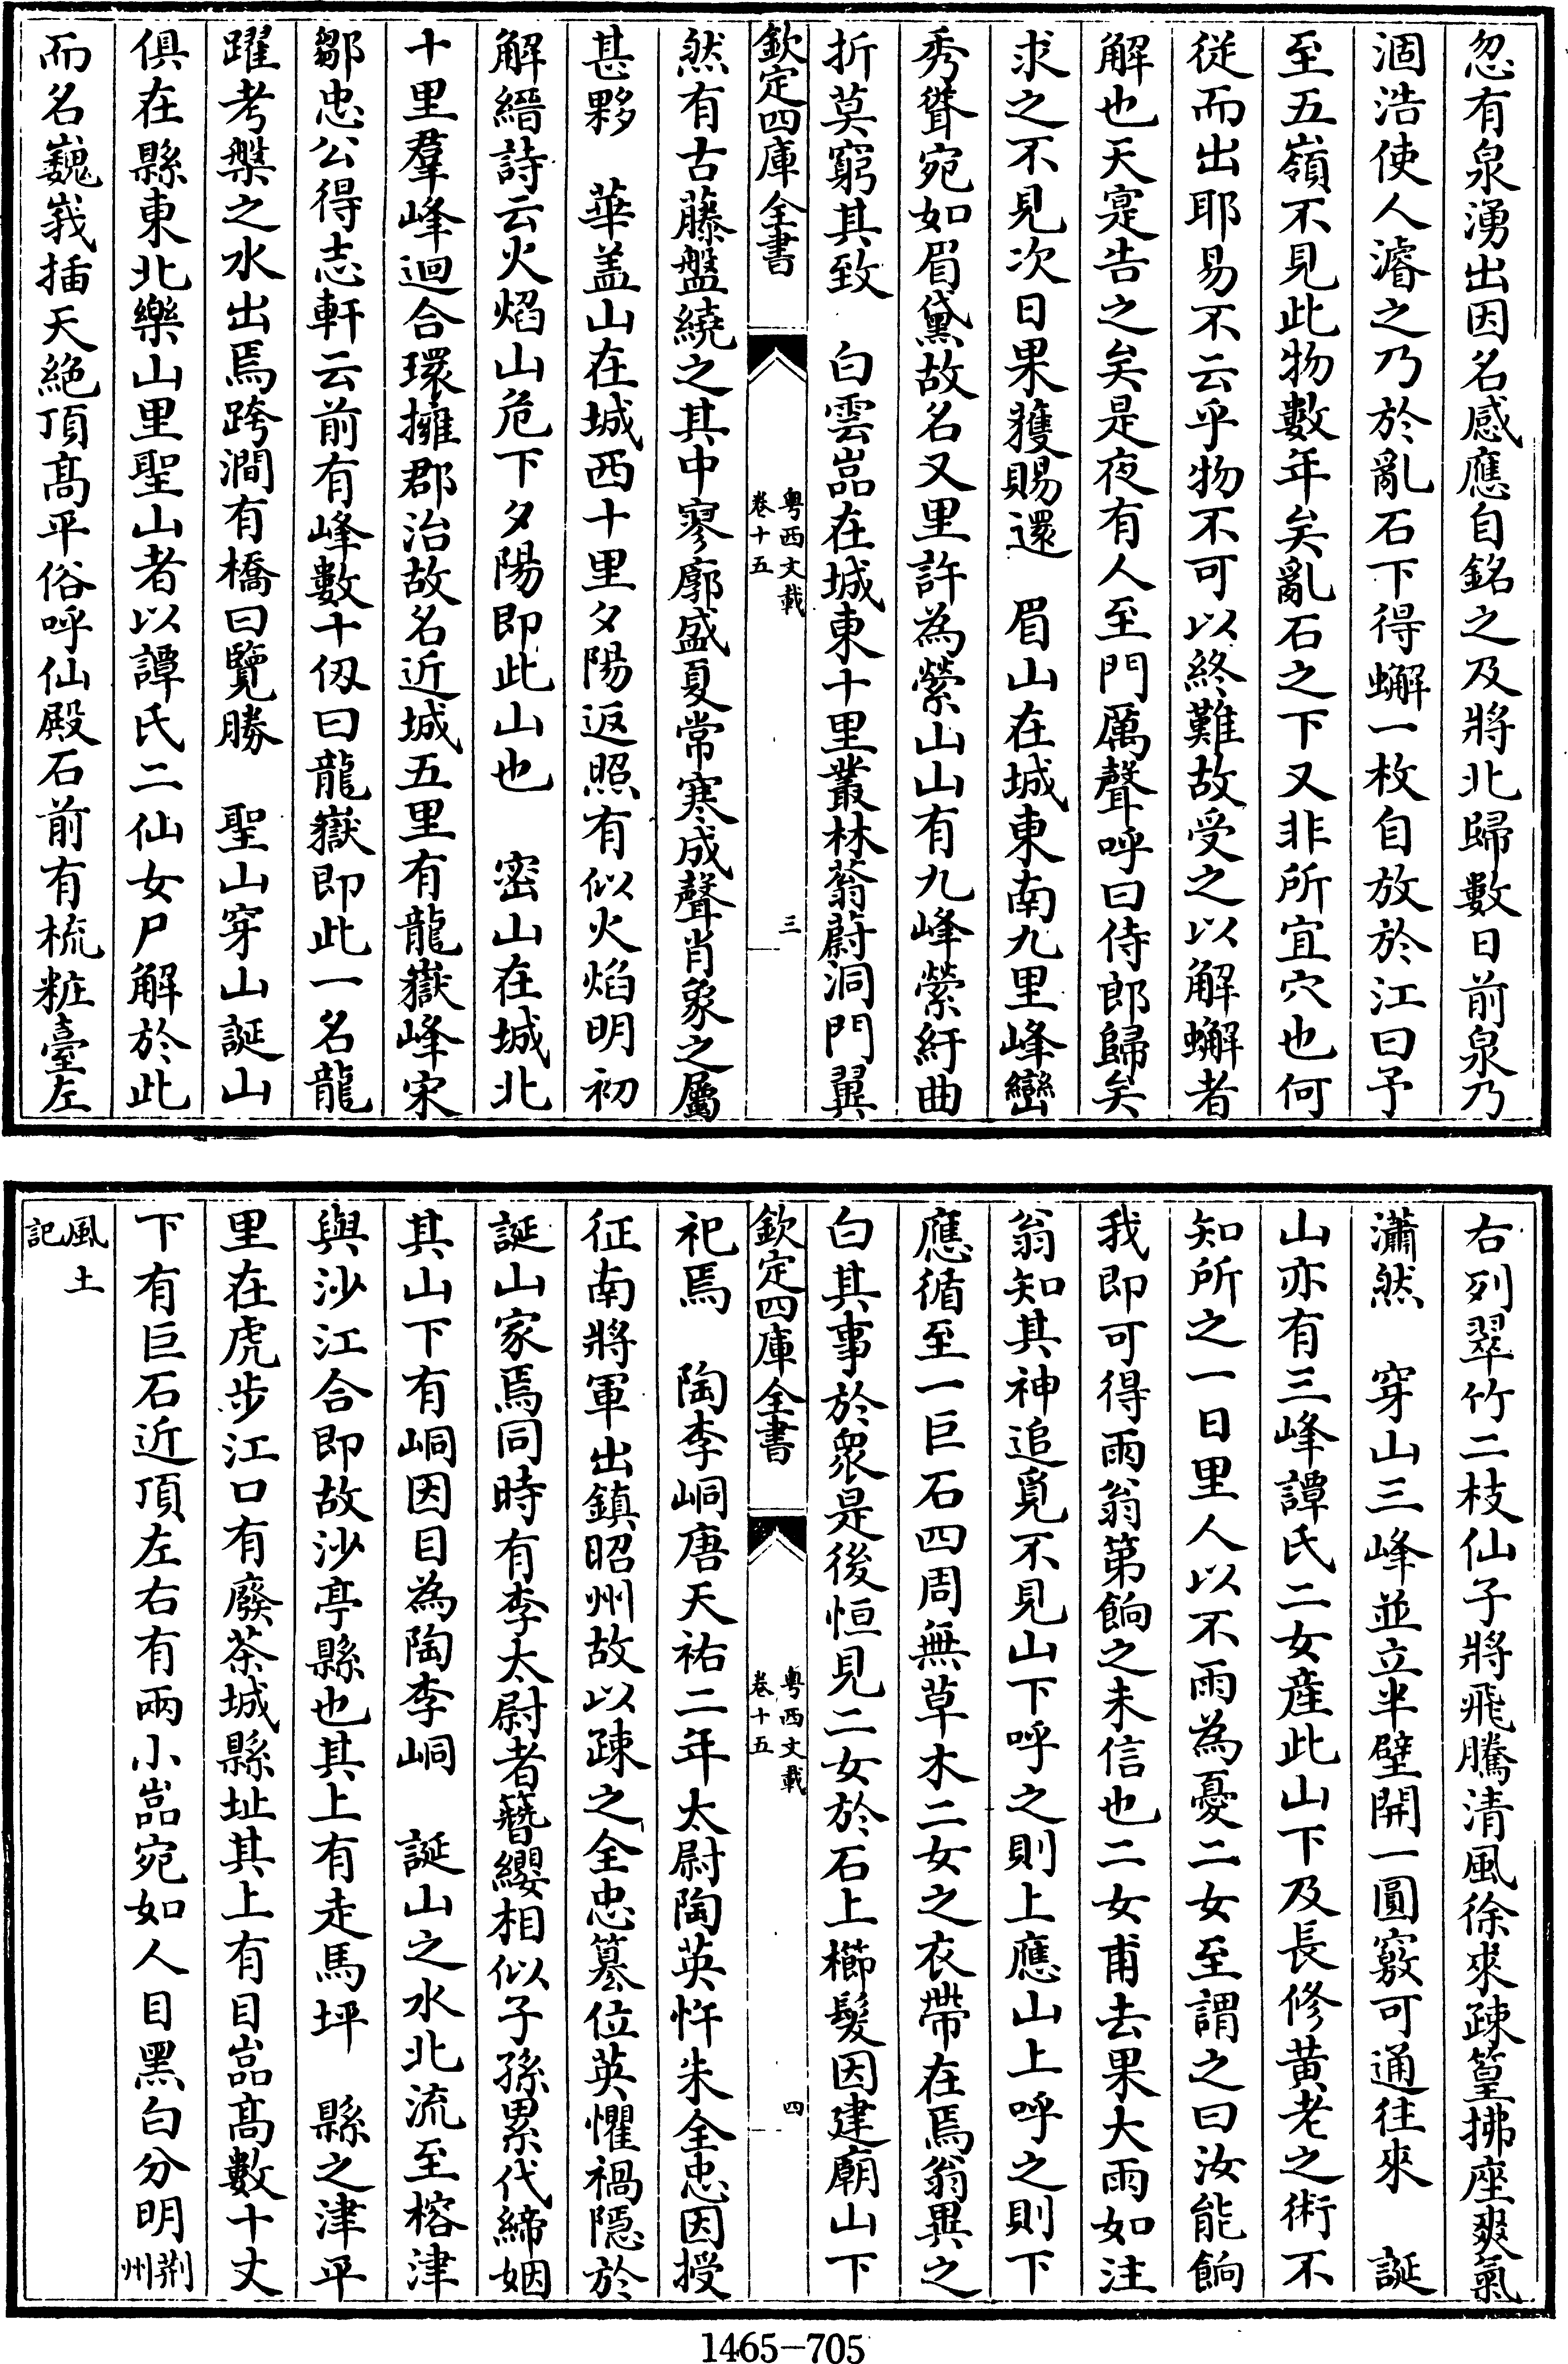 忽有泉湧出因名感應自銘之及將北歸數日前泉乃
涸浩使人濬之乃於亂石下得蠏一枚自放於江曰予
至五嶺不見此物數年矣亂石之下又非所宜穴也何
從而出耶易不云乎物不可以終難故受之以解蠏者
解也天寔告之矣是夜有人至門厲聲呼曰侍郎歸矣
求之不見次日果獲賜還　眉山在城東南九里峰巒
秀聳宛如眉黛故名又里許為縈山山有九峰縈紆曲
折莫窮其致　白雲嵓在城東十里叢林蓊蔚洞門翼
欽定四庫全書　粤西文載卷十五　三
然有古藤盤繞之其中寥廓盛夏常寒成聲肖象之屬
甚夥　華盖山在城西十里夕陽返照有似火焰明初
解縉詩云火焰山危下夕陽即此山也　密山在城北
十里羣峰迴合環擁郡治故名近城五里有龍嶽峰宋
鄒忠公得志軒云前有峰數十仭曰龍嶽即此一名龍
躍考槃之水出焉跨澗有橋曰覽勝　聖山穿山誕山
俱在縣東北樂山里聖山者以譚氏二仙女尸解於此
而名巍峩插天絶頂髙平俗呼仙殿石前有梳粧臺左
右列翠竹二枝仙子將飛騰清風徐來疎篁拂座爽氣
瀟然　穿山三峰並立半壁開一圓竅可通往來　誕
山亦有三峰譚氏二女産此山下及長修黄老之術不
知所之一日里人以不雨為憂二女至謂之曰汝能餉
我即可得雨翁第餉之未信也二女甫去果大雨如注
翁知其神追覓不見山下呼之則上應山上呼之則下
應循至一巨石四周無草木二女之衣帶在焉翁異之
白其事於衆是後恒見二女於石上櫛髮因建廟山下
欽定四庫全書　粤西文載卷十五　四
祀焉　陶李峒唐天祐二年太尉陶英忤朱全忠因授
征南將軍出鎮昭州故以疎之全忠簒位英懼禍隱於
誕山家焉同時有李太尉者簪纓相似子孫累代締姻
其山下有峒因目為陶李峒　誕山之水北流至榕津
與沙江合即故沙亭縣也其上有走馬坪　縣之津平
里在虎步江口有廢茶城縣址其上有目嵓髙數十丈
下有巨石近頂左右有兩小嵓宛如人目黑白分明荆州
風土記
1465-705